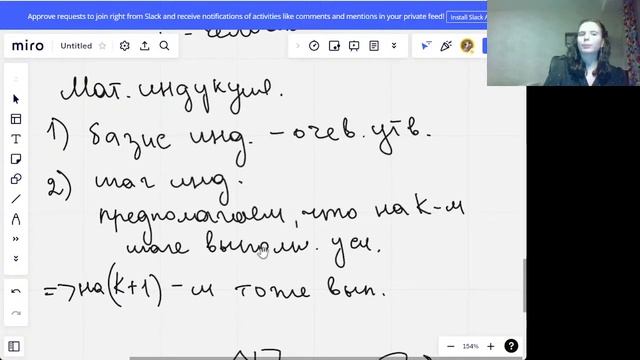 Approve requests to join right from Slack and receive notifications of activities like comments and mentions in your private feed!
Install Slack A
miro
Untitled
Мат. индукция.
1) базис инд. - очев. утв.
2) шаг инд.
предполагаем, что на k-м
шаге выполн. усл.
=> на (k+1) - м тоже вып.
154%